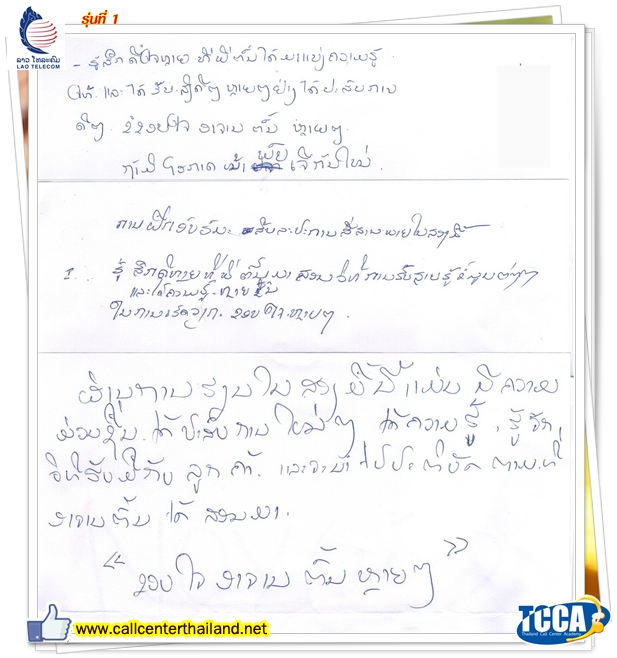 รุ่นที่ 1
ລາວ ໂທລະຄົມ
LAO TELECOM
- ຮູ້ສຶກ ດີໃຈຫຼາຍ ທີ່ ພີ່ຕົ້ມ ໄດ້ ມາແບ່ງ ຄວາມຮູ້
ໃຫ້ ແລະ ໄດ້ ຮັບ ສິ່ງດີໆ ຫຼາຍໆຢ່າງ ໄດ້ ປະສົບການ
ດີໆ. ຂໍຂອບໃຈ ອາຈານ ຕົ້ມ ຫຼາຍໆ.
ຖ້າມີ ໂອກາດ ໜ້າ ພົບ ເຈີ ກັນໃໝ່.
ການຝຶກອົບຮົມ
1. ຮູ້ ສຶກດີຫຼາຍ ທີ່ ພີ່ ຕົ້ມ ມາ ສອນ ວິທີ ການຮັບສາຍ
ແລະ ໄດ້ຄວາມຮູ້ ຫຼາຍ ຂຶ້ນ
ໃນການເຮັດວຽກ. ຂອບໃຈ ຫຼາຍໆ.
ຮຽນໃນ ສອງ ມື້ນີ້ ແມ່ນ ມີ ຄວາມ
ມ່ວນຊື່ນ. ໄດ້ ປະສົບ ການ ໃໝ່ໆ ໄດ້ ຄວາມ ຮູ້, ຮູ້ຈັກ
ກັບ ລູກ ຄ້າ. ແລະຈະນຳ ໄປປະຕິບັດ ຕາມ ທີ່
ອາຈານ ຕົ້ມ ໄດ້ ສອນ ມາ.
" ຂອບໃຈ ອາຈານ ຕົ້ມ ຫຼາຍໆ "
www.callcenterthailand.net
TCCA
Thailand Call Center Academy